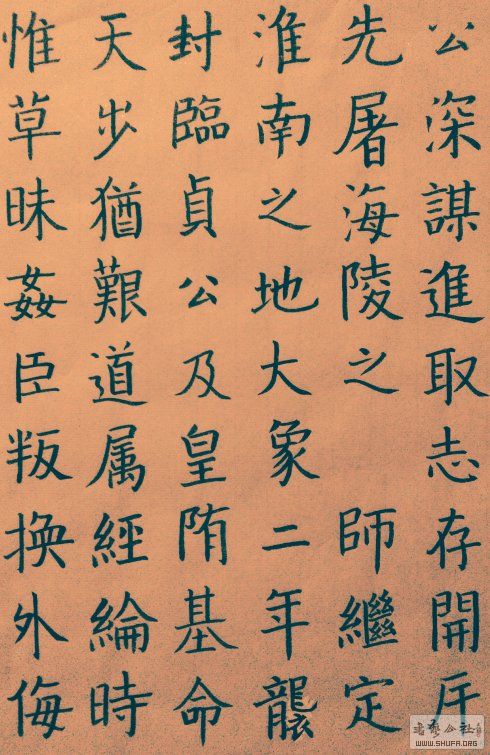 公深謀進取志存開斥
先屠海陵之 師繼定
淮南之地大象二年襲
封臨貞公及皇陏基命
天步猶艱道属經綸時
惟草昧姦臣叛換外侮
書藝公社
WWW.SHUFA.ORG